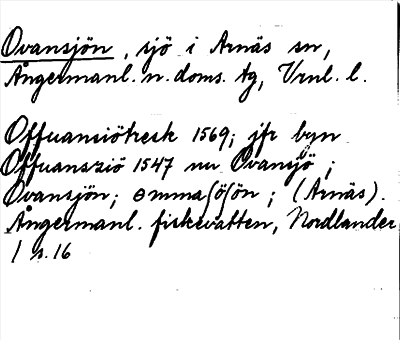 Ovansjön, sjö i Arnäs sn,
Ångermanl. n. doms. tg, Vrnl. l.
Offuansiötresk 1569; jfr byn
Offuansziö 1547 nu Ovansjö;
Ovansjön; omma∫ö∫ön; (Arnäs).
Ångermanl. fiskevatten, Nordlander
1 s. 16